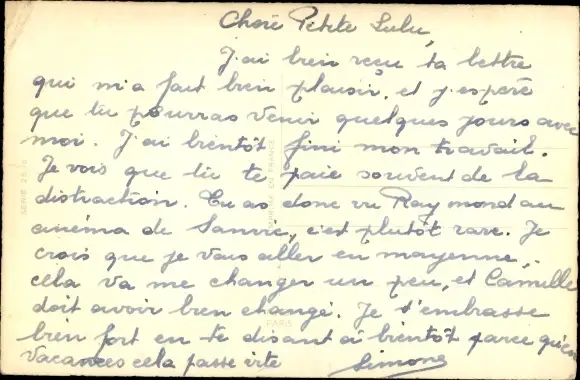 Chère Petite Lulu,
J'ai bien reçu ta lettre
qui m'a fait bien plaisir, et j'espère
que tu pourras venir quelques jours avec
moi. J'ai bientôt fini mon travail.
Je vois que tu te paie souvent de la
distraction. Tu as donc vu Raymond au
cinéma de Sanvic, c'est plutôt rare. Je
crois que je vais aller en mayenne,
cela va me changer un peu, et Camille
doit avoir bien changé. Je t'embrasse
bien fort en te disant à bientôt parce qu'en
vacances cela passe vite
Simone
SERIE
IMPRIMÉ EN FRANCE
PARIS